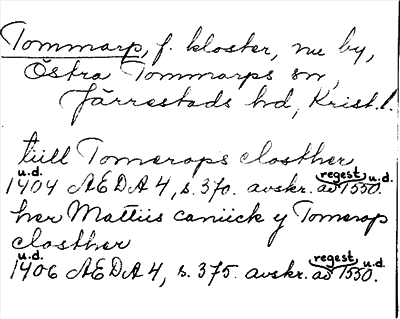 Tommarp, f. kloster, nu by,
Östra Tommarps sn,
Järrestads hd, Krist.l.
tiill Tomerops closther
u.d. regest u.d.
1404 AEDA 4, s. 370. avskr. av 1550.
her Mattiis caniick y Tomerop
closther
u.d. regest u.d.
1406 AEDA 4, s. 375. avskr. av 1550.